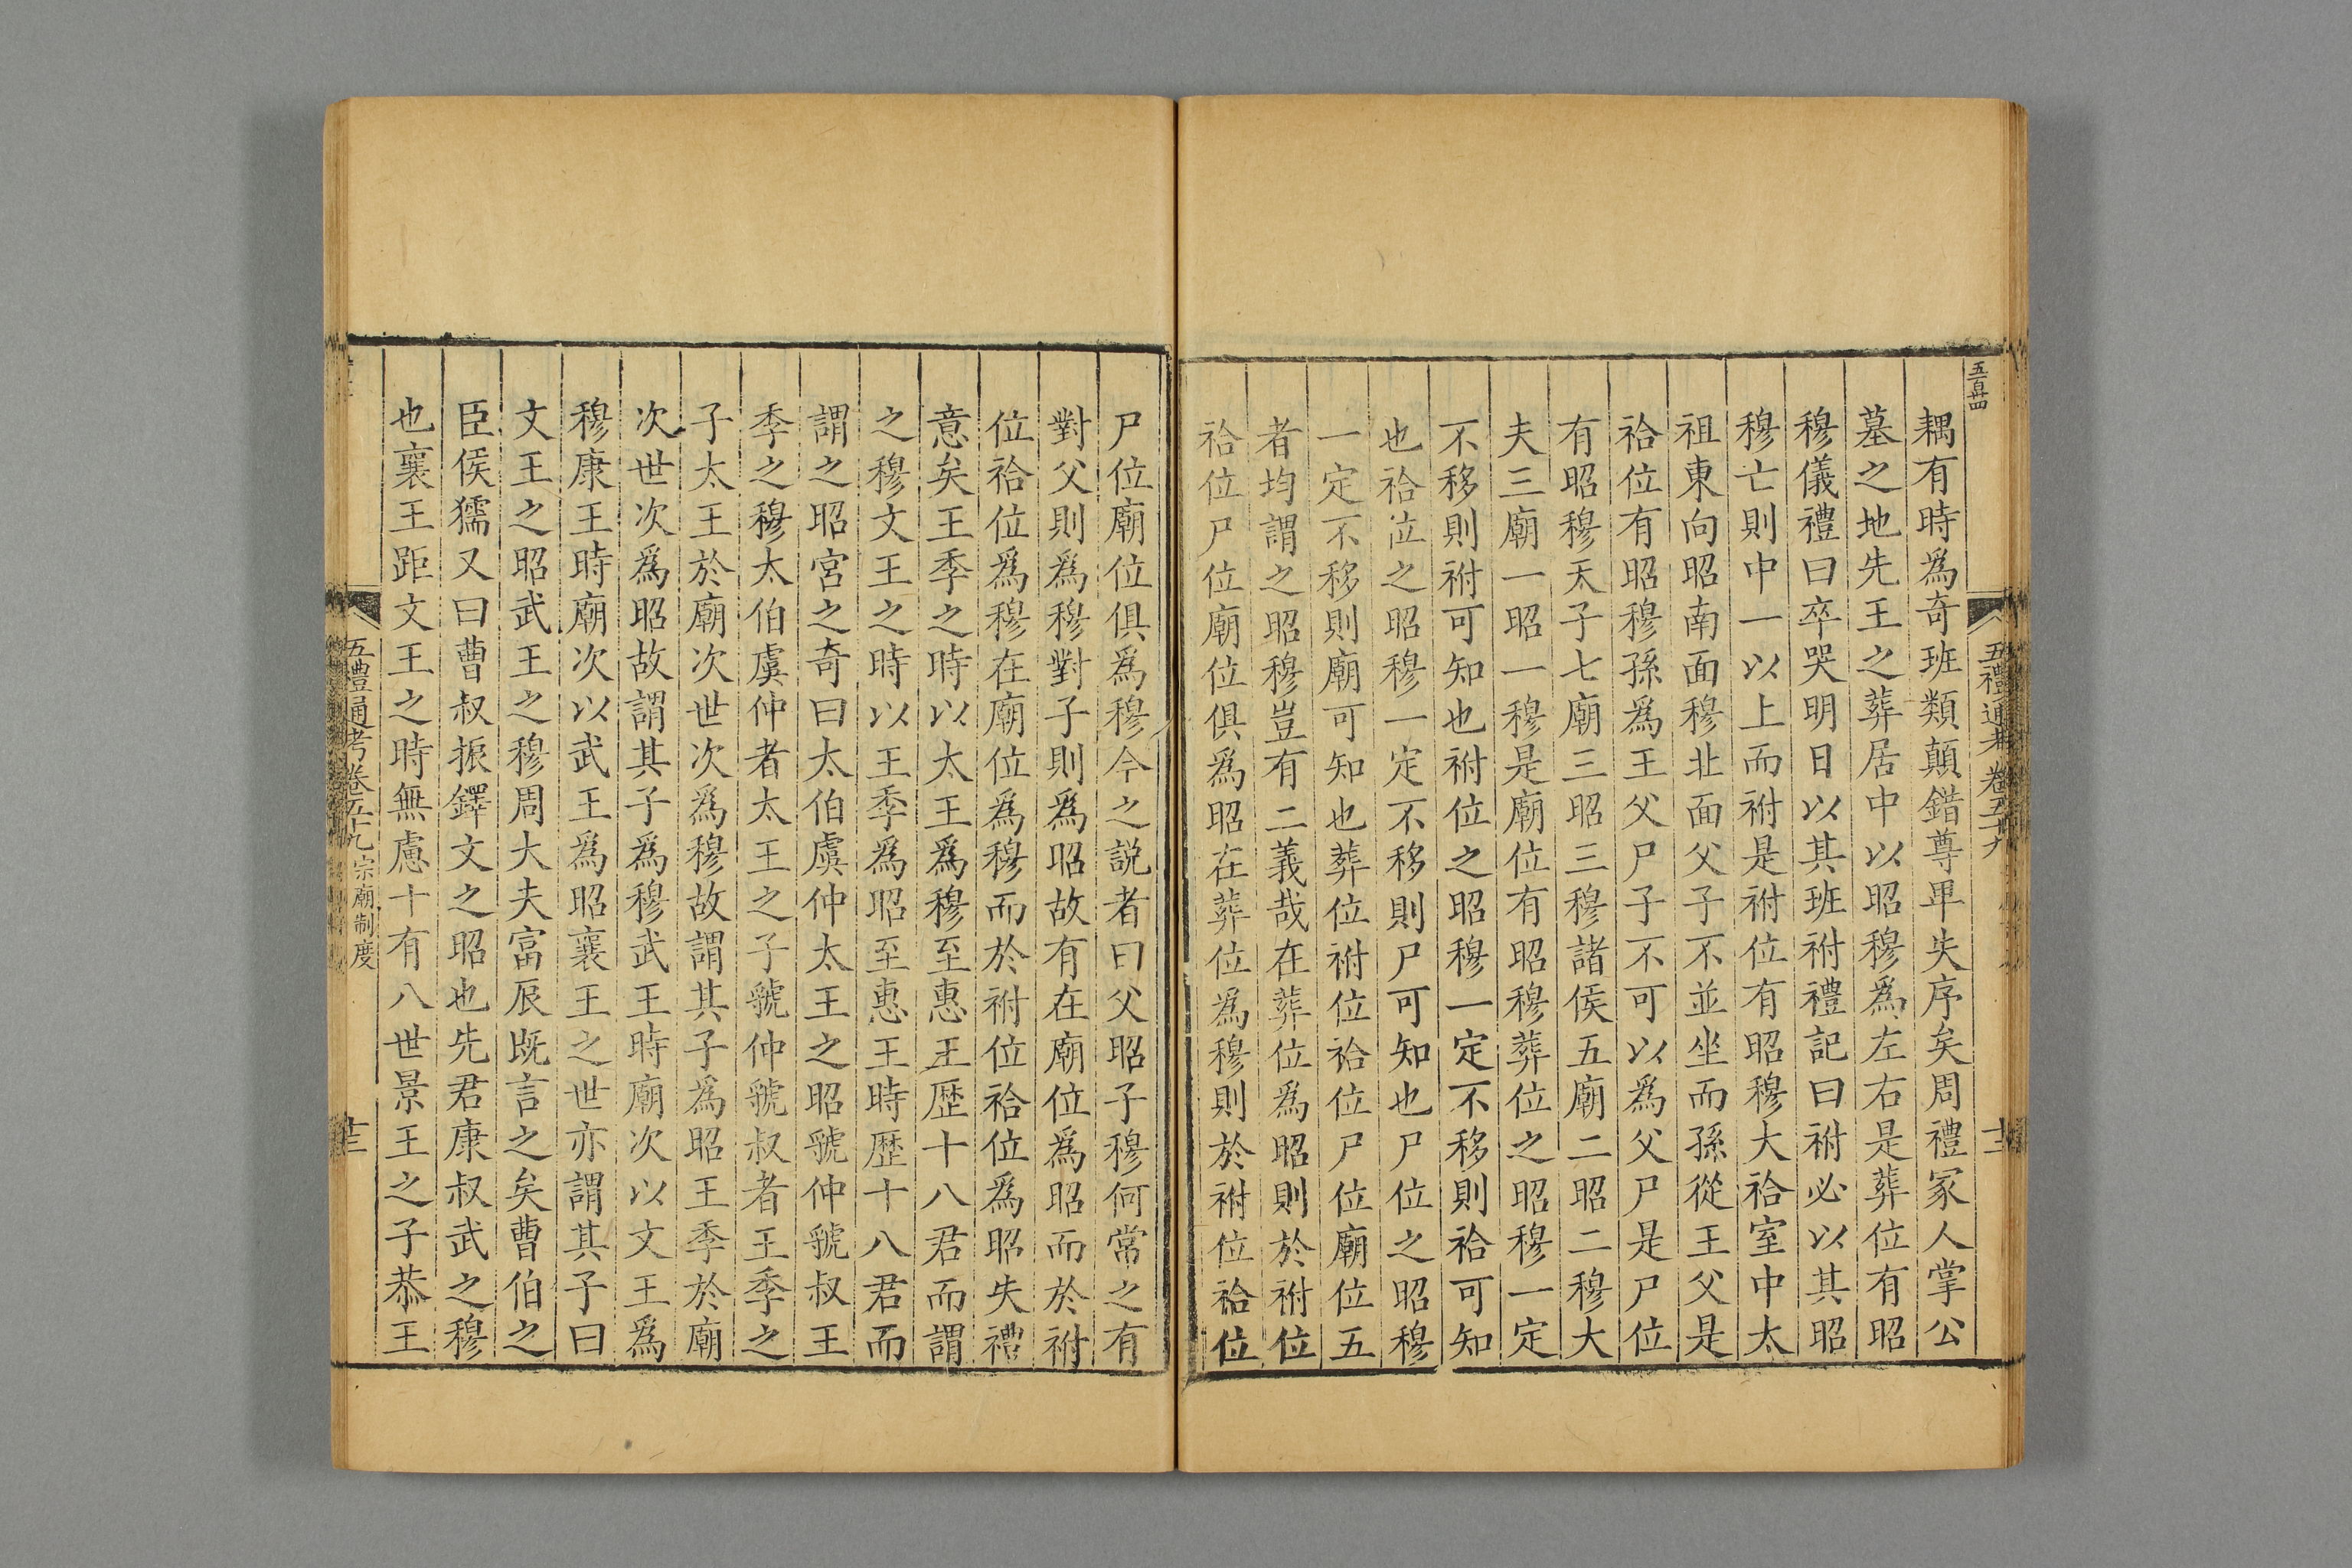 五百卌四
五禮通考卷五十九
十二
耦有時爲奇班類顛錯尊卑失序矣周禮冢人掌公
墓之地先王之葬居中以昭穆爲左右是葬位有昭
穆儀禮曰卒哭明日以其班祔禮記曰祔必以其昭
穆亡則中一以上而祔是祔位有昭穆大祫室中太
祖東向昭南面穆北面父子不並坐而孫從王父是
祫位有昭穆孫爲王父尸子不可以爲父尸是尸位
有昭穆天子七廟三昭三穆諸侯五廟二昭二穆大
夫三廟一昭一穆是廟位有昭穆葬位之昭穆一定
不移則祔可知也祔位之昭穆一定不移則祫可知
也祫位之昭穆一定不移則尸可知也尸位之昭穆
一定不移則廟可知也葬位祔位祫位尸位廟位五
者均謂之昭穆豈有二義哉在葬位爲昭則於祔位
祫位尸位廟位俱爲昭在葬位爲穆則於祔位祫位
尸位廟位俱爲穆今之說者曰父昭子穆何常之有
對父則爲穆對子則爲昭故有在廟位爲昭而於祔
位祫位爲穆在廟位爲穆而於祔位祫位爲昭失禮
意矣王季之時以太王爲穆至惠王歷十八君而謂
之穆文王之時以王季爲昭至惠王時歷十八君而
謂之昭宮之奇曰太伯虞仲太王之昭虢仲虢叔王
季之穆太伯虞仲者太王之子虢仲虢叔者王季之
子太王於廟次世次爲穆故謂其子爲昭王季於廟
次世次爲昭故謂其子爲穆武王時廟次以文王爲
穆康王時廟次以武王爲昭襄王之世亦謂其子曰
文王之昭武王之穆周大夫富辰既言之矣曹伯之
臣侯獳又曰曹叔振鐸文之昭也先君康叔武之穆
也襄王距文王之時無慮十有八世景王之子恭王
五禮通考卷五十九 宗廟制度
十三